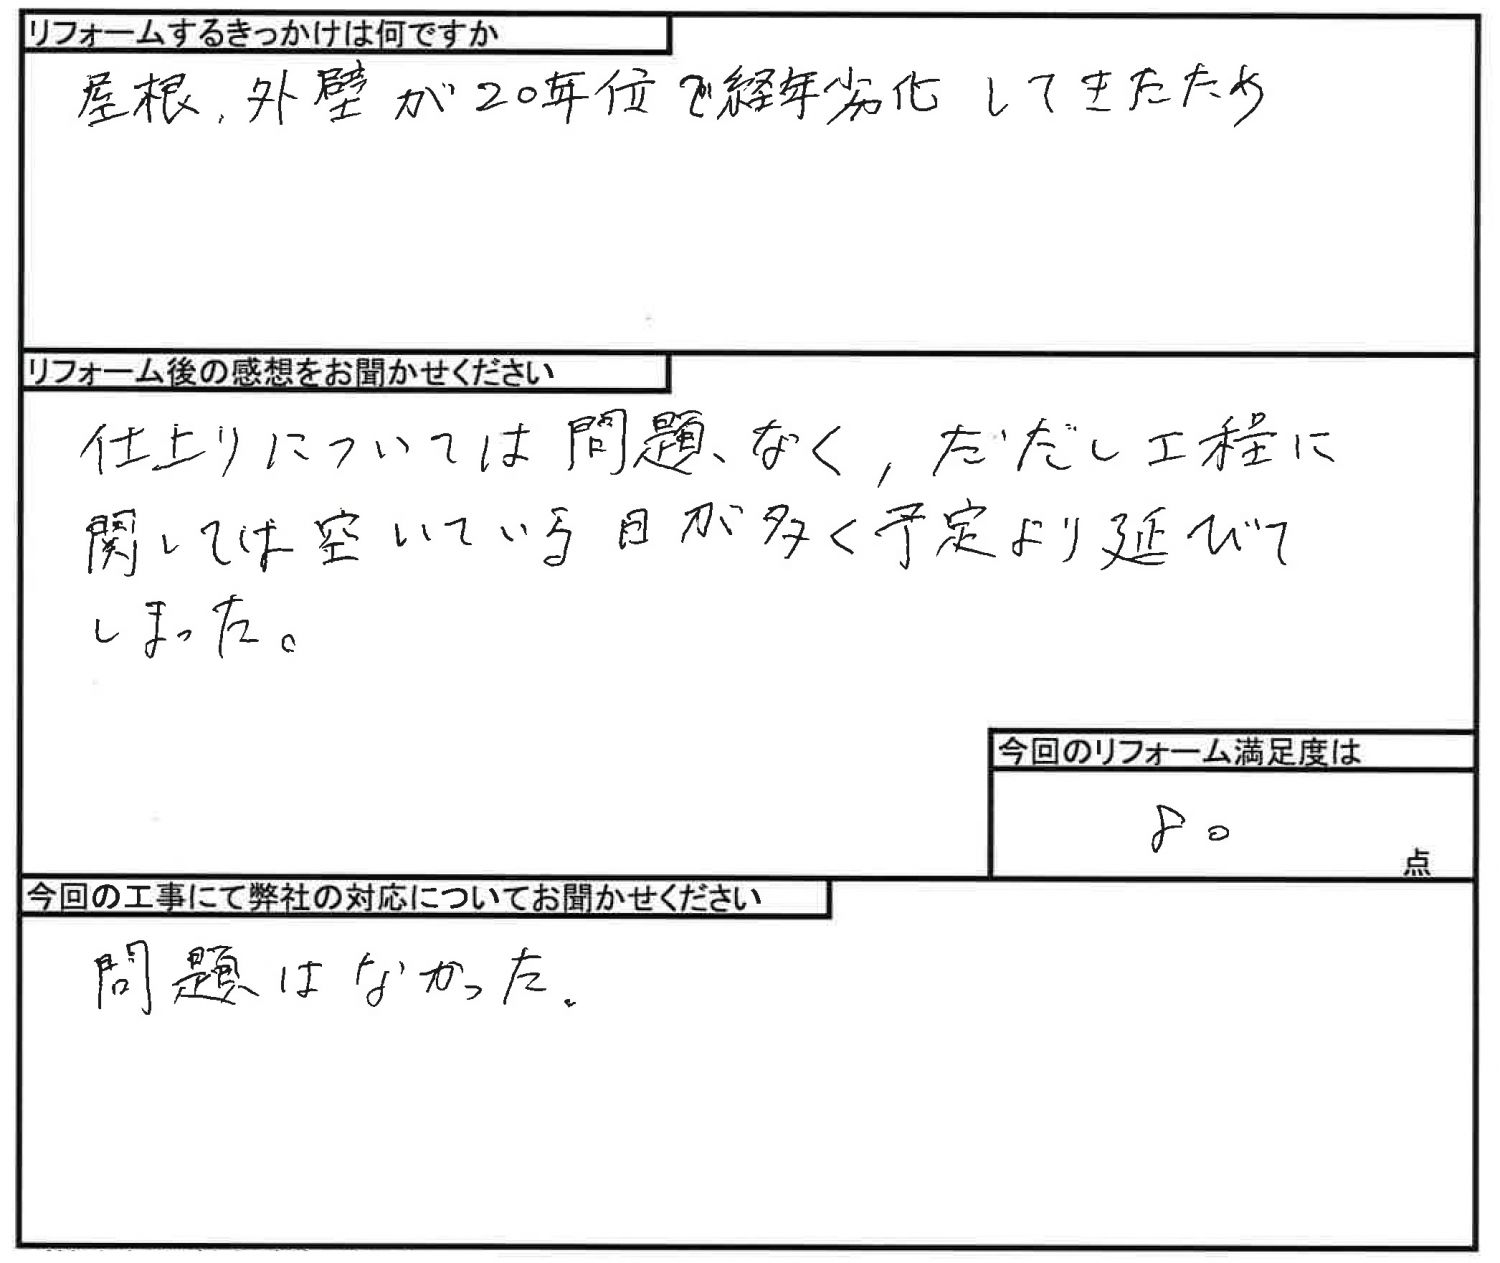 リフォームするきっかけは何ですか
屋根、外壁が20年位で経年劣化してきたため
リフォーム後の感想をお聞かせください
仕上りについては問題なく、だだし工程に
関しては空いている日が多く予定より延びて
しまった。
今回のリフォーム満足度は
80
点
今回の工事にて弊社の対応についてお聞かせください
問題はなかった。